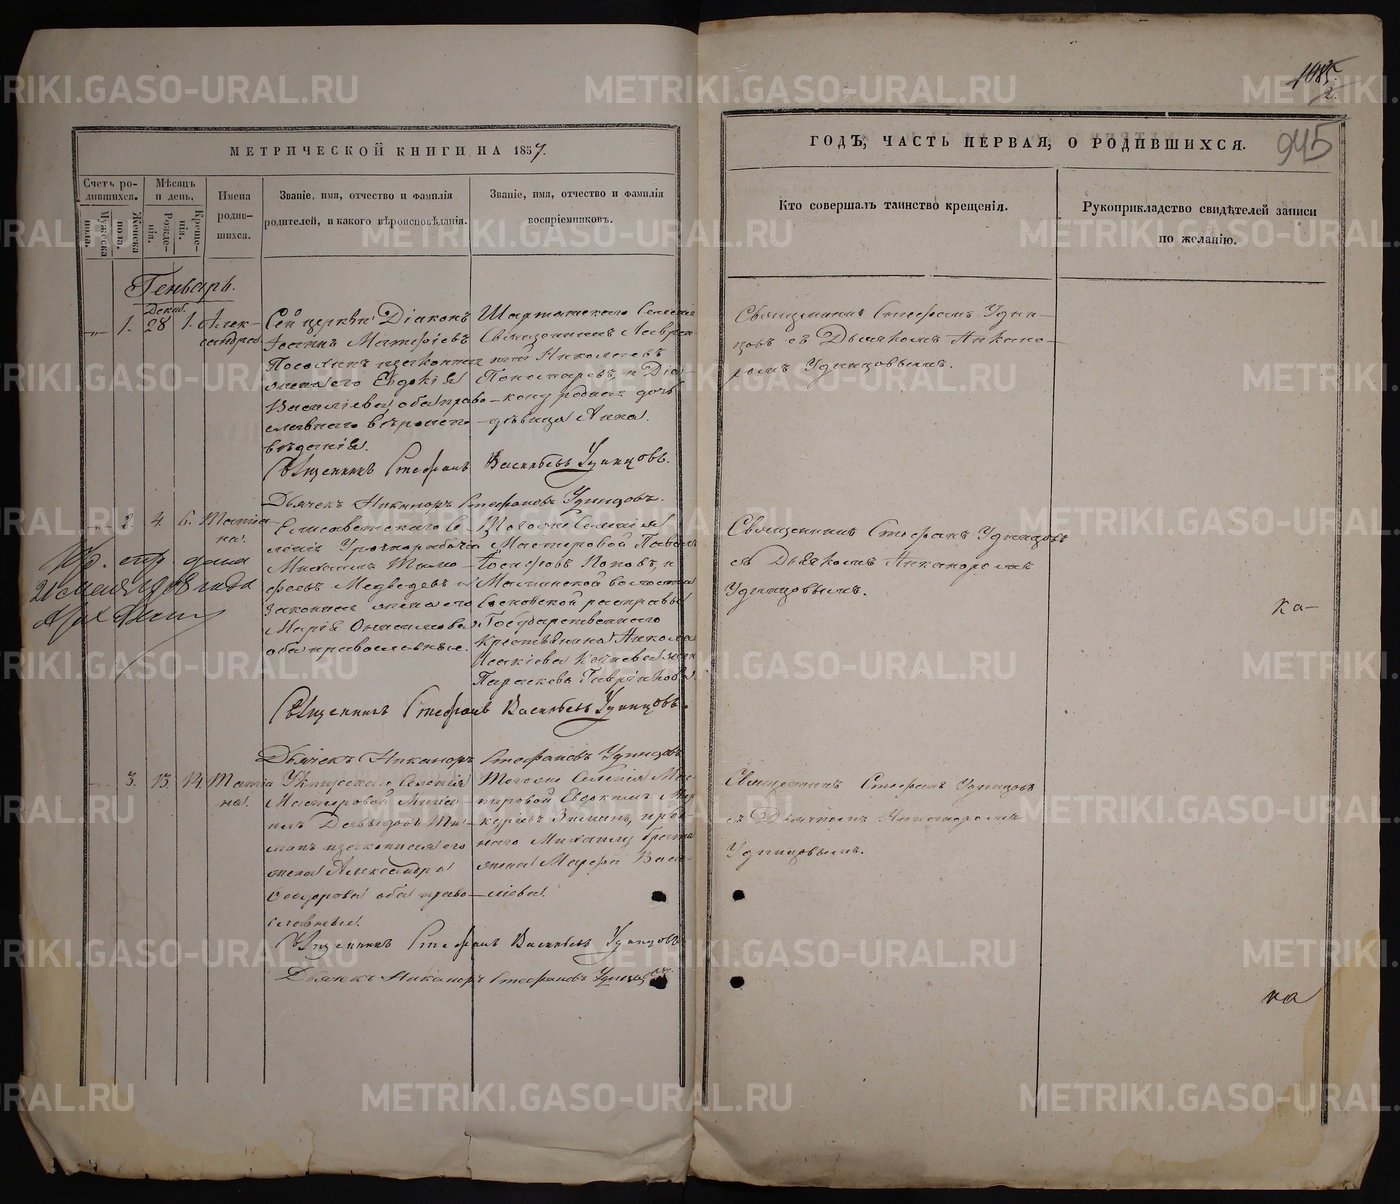 МЕТРИЧЕСКОЙ КНИГИ НА 1857.
Счетъ родившихся.
Мужеска пола.
Женска пола.
Мѣсяцъ и день.
Рожденія.
Крещенія.
Имена родившихся.
Званіе, имя, отчество и фамилія родителей, и какого вѣроисповѣданія.
Званіе, имя, отчество и фамилія воспріемниковъ.
Генварь.
1. Декаб. 28 1. Александра
Сей церкви Діаконъ
Іоаннъ Матфіевъ
жена его Евдокія
Василіева, оба право-
славнаго вѣроиспо-
вѣданія.
Шарташскаго Селенія
Священникъ Лаврен-
тій Николаевъ
Пономаревъ, и Діа-
кону родная дочь
дѣвица Анна.
Священникъ Стефанъ Васильевъ Удинцовъ.
Дьячекъ Никаноръ Стефановъ Удинцовъ.
2. 4. 6. Татіа-
на.
Елисаветскаго Се-
ленія Урочнорабочій
Михаилъ Тимо-
феевъ Медведевъ и
законная жена его
Марія Онисимова
оба православные.
Тогоже Селенія
Мастеровой Павелъ
Іосифовъ Поповъ, и
волости
расправы
Государственнаго
крестьянина Никола
жена
Параскева Гавріилова
Священникъ Стефанъ Васильевъ Удинцовъ.
Дьячекъ Никаноръ Стефановъ Удинцовъ.
3. 13. 14. Татіа-
на.
Уктусскаго Селенія
Мастеровой Миха-
илъ Давыдовъ
и законная его
жена Александра
Сидорова оба право-
славные.
Тогоже Селенія Мас-
теровой Евдокимъ Мер-
курьевъ Зиминъ, и род-
наго Михаилу брата
жена Марфа Васи-
ліева.
Священникъ Стефанъ Васильевъ Удинцовъ
Дьячекъ Никаноръ Стефановъ Удинцовъ
21 мая 1918 года
ГОДЪ, ЧАСТЬ ПЕРВАЯ, О РОДИВШИХСЯ.
945
2.
Кто совершалъ таинство крещенія.
Рукоприкладство свидѣтелей записи
по желанію.
Священникъ Стефанъ Удин-
цовъ съ Дьячкомъ Никано-
ромъ Удинцовымъ.
Священникъ Стефанъ Удинцовъ
съ Дьячкомъ Никаноромъ
Удинцовымъ.
ка-
Священникъ Стефанъ Удинцовъ
съ Дьячкомъ Никаноромъ
Удинцовымъ.
ка
METRIKI.GASO-URAL.RU